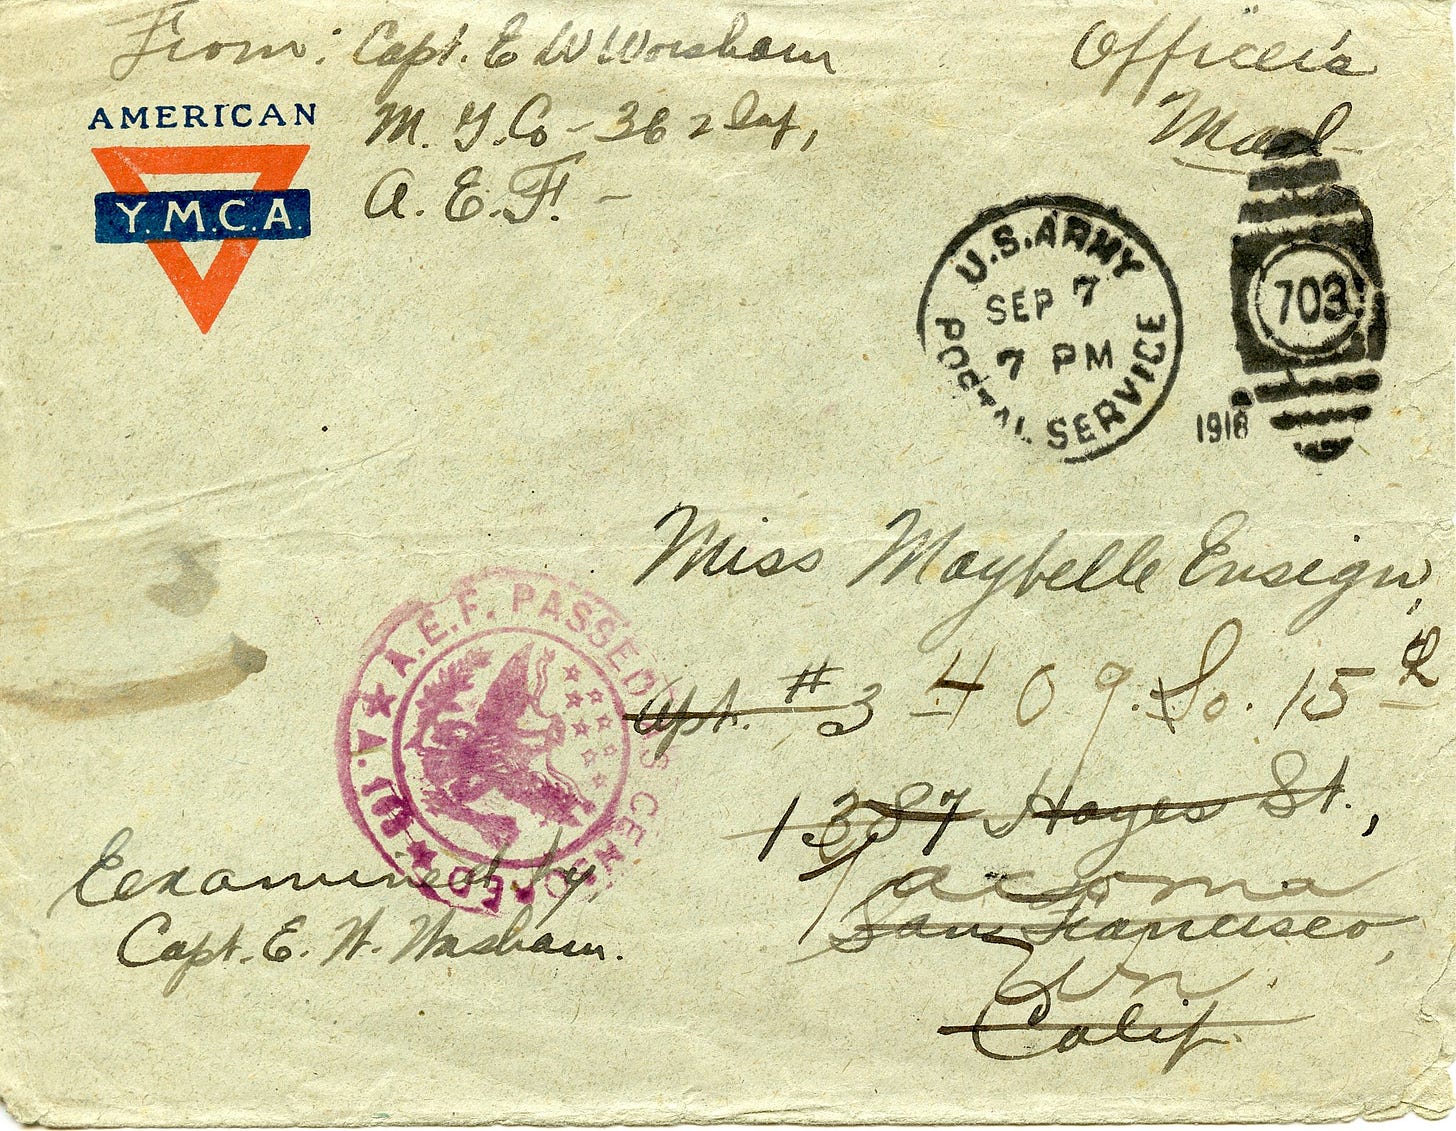 From: Capt. E W Worsham
Officer's
Mail
AMERICAN
Y.M.C.A.
M. G. Co - 362 Inf,
A. E. F. -
U.S. ARMY
POSTAL SERVICE
SEP 7
7 PM
703
1918
Miss Maybelle Ensign,
Apt. #3 409 So. 15th
1387 Hayes St.,
Tacoma
San Francisco,
Wn
Calif.
A.E.F. PASSED AS CENSORED
U.S.A.
Eexamined by
Capt. E. W. Worsham.